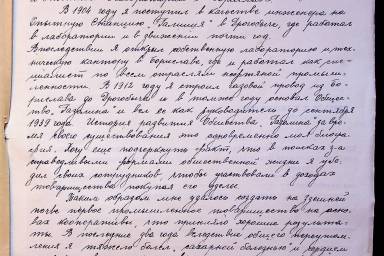 В 1904 году я поступил в качестве инженера на
Опытную Станцию "Галиция" в Дрогобыче, где работал
в лаборатории и в движении почти год.
Впоследствии я открыл собственную лабораторию и тех-
ническую контору в Бориславе, где и работал как спе-
циалист по всем отраслям нефтяной промыш-
ленности. В 1912 году я строил газовой провод из Бо-
рислава до Дрогобыча и в том же году основал Обще-
ство "Газолина" и вел ее как руководитель до сентября
1939 года. История развития Общества "Газолина" за вре-
мя своего существования это одновременно моя биогра-
фия. Хочу еще подчеркнуть факт, что в поисках за
справедливыми формами общественной жизни я убе-
дил своих сотрудников, чтобы участвовали в доходах
товарищества покупая его уделы.
Таким образом мне удалось создать на здешней
почве первое промышленное товарищество на осно-
вах кооперативы, что принесло хорошие результа-
ты. В последние два года вследствие общего переутом-
ления я тяжело болел "сахарной болезнью" и сердцем